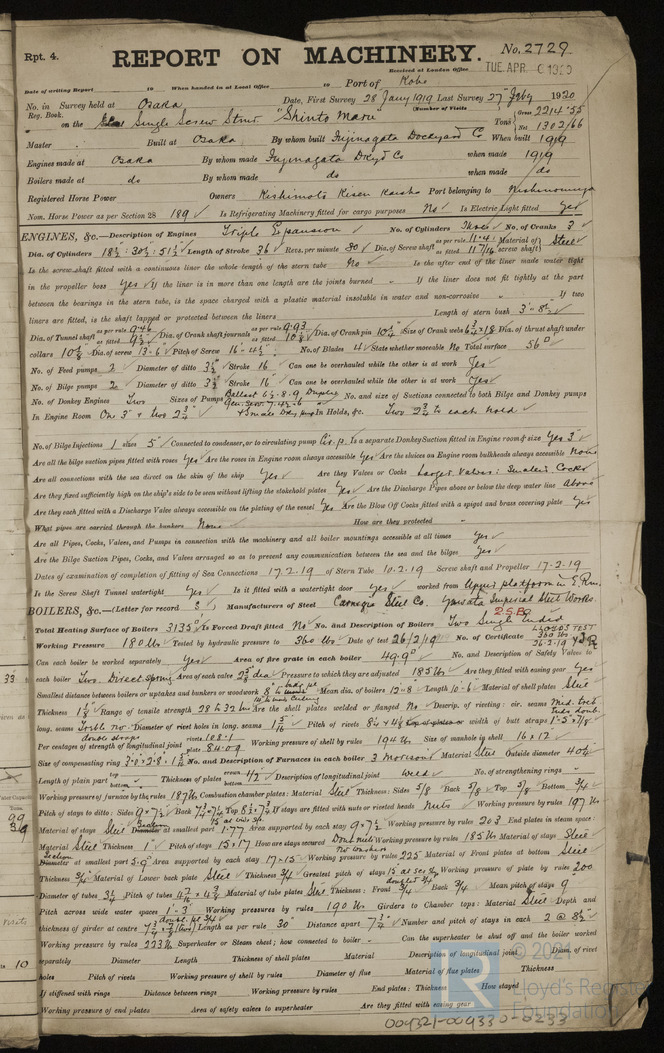 Rpt. 4.
REPORT ON MACHINERY.
No. 2729
Received at London Office TUE. APR
Date of writing Report 19 When handed in at Local Office 19 Port of Kobe
No. in Survey held at Osaka Date, First Survey 28 Jany 1919 Last Survey 27 Feby 1920
Reg. Book. (Number of Visits
on the Single Screw Strmr "Shinto Maru" Tons Gross 2214.55 Net 1302.66
Master Built at Osaka By whom built Fujinagata Dockyard Co When built 1919
Engines made at Osaka By whom made Fujinagata Dkyd Co when made 1919
Boilers made at do By whom made do when made do
Registered Horse Power Owners Kishimoto Kisen Kaisha Port belonging to
Nom. Horse Power as per Section 28 189 Is Refrigerating Machinery fitted for cargo purposes No Is Electric Light fitted Yes
ENGINES, &c.—Description of Engines Triple Expansion No. of Cylinders Three No. of Cranks 3
Dia. of Cylinders 18½"-30½"-51½" Length of Stroke 36 Revs. per minute 80 Dia. of Screw shaft as per rule 11.41 as fitted 11 7/16 Material of screw shaft Steel
Is the screw shaft fitted with a continuous liner the whole length of the stern tube No Is the after end of the liner made water tight
in the propeller boss Yes If the liner is in more than one length are the joints burned " If the liner does not fit tightly at the part
between the bearings in the stern tube, is the space charged with a plastic material insoluble in water and non-corrosive " If two
liners are fitted, is the shaft lapped or protected between the liners Length of stern bush 3'-8½"
Dia. of Tunnel shaft as per rule 9.46 as fitted 9½ Dia. of Crank shaft journals as per rule 9.93 as fitted 10⅛ Dia. of Crank pin 10¼ Size of Crank webs 6½x18 Dia. of thrust shaft under
collars 10⅛ Dia. of screw 13-6 Pitch of Screw 16-4½ No. of Blades 4 State whether moveable No Total surface 56□
No. of Feed pumps 2 Diameter of ditto 3½ Stroke 16" Can one be overhauled while the other is at work Yes
No. of Bilge pumps 2 Diameter of ditto 3½ Stroke 16" Can one be overhauled while the other is at work Yes
No. of Donkey Engines Two Sizes of Pumps Ballast 6½.8.9 Duplex No. and size of Suctions connected to both Bilge and Donkey pumps
In Engine Room One 3" & two 2¾" In Holds, &c. Two 2¾ to each hold
No. of Bilge Injections 1 sizes 5" Connected to condenser, or to circulating pump Cir. p. Is a separate Donkey Suction fitted in Engine room & size Yes 3"
Are all the bilge suction pipes fitted with roses Yes Are the roses in Engine room always accessible Yes Are the sluices on Engine room bulkheads always accessible None
Are all connections with the sea direct on the skin of the ship Yes Are they Valves or Cocks Larger Valves: Smaller Cocks
Are they fixed sufficiently high on the ship's side to be seen without lifting the stokehold plates Yes Are the Discharge Pipes above or below the deep water line above
Are they each fitted with a Discharge Valve always accessible on the plating of the vessel Yes Are the Blow Off Cocks fitted with a spigot and brass covering plate Yes
What pipes are carried through the bunkers None How are they protected "
Are all Pipes, Cocks, Valves, and Pumps in connection with the machinery and all boiler mountings accessible at all times Yes
Are the Bilge Suction Pipes, Cocks, and Valves arranged so as to prevent any communication between the sea and the bilges Yes
Dates of examination of completion of fitting of Sea Connections 17.2.19 of Stern Tube 10.2.19 Screw shaft and Propeller 17.2.19
Is the Screw Shaft Tunnel watertight Yes Is it fitted with a watertight door yes worked from Upper platform in E. Rm.
BOILERS, &c.—(Letter for record S) Manufacturers of Steel Carnegie Steel Co. Yawata Imperial Steel Works.
2 SB
Total Heating Surface of Boilers 3135 Is Forced Draft fitted No No. and Description of Boilers Two Single Ended
Working Pressure 180 lbs Tested by hydraulic pressure to 360 lbs Date of test 26/2/19 No. of Certificate LLOYDS TEST 360 lbs 26.2.19
Can each boiler be worked separately Yes Area of fire grate in each boiler 49.9 No. and Description of Safety Valves to
each boiler Two. Direct spring Area of each valve dia Pressure to which they are adjusted 185 lbs Are they fitted with easing gear Yes
Smallest distance between boilers or uptakes and bunkers or woodwork Mean dia. of boilers 12-8 Length 10-6 Material of shell plates Steel
Thickness 1⅛ Range of tensile strength 28 to 32 tons Are the shell plates welded or flanged No Descrip. of riveting: cir. seams
long. seams double straps Diameter of rivet holes in long. seams 1 5/16 Pitch of rivets Lap of plates or width of butt straps 1-5 x 7/8
Per centages of strength of longitudinal joint rivets 108.1 plate 84.09 Working pressure of shell by rules 194 lbs Size of manhole in shell 16 x 12
Size of compensating ring No. and Description of Furnaces in each boiler 3 Morisons Material Steel Outside diameter
Length of plain part top bottom Thickness of plates crown bottom 1/2 Description of longitudinal joint weld No. of strengthening rings
Working pressure of furnace by the rules 187 lbs Combustion chamber plates: Material Steel Thickness: Sides 5/8 Back 5/8 Top 5/8 Bottom 3/4
Pitch of stays to ditto: Sides 9 x 7½ Back Top If stays are fitted with nuts or riveted heads nuts Working pressure by rules 197 lbs
Material of stays Steel Diameter at smallest part 1.77 Area supported by each stay 9 x 7½ Working pressure by rules 203 End plates in steam space:
Material Steel Thickness 1" Pitch of stays 15 x 17 How are stays secured Working pressure by rules 185 lbs Material of stays Steel
Diameter at smallest part 5.9 Area supported by each stay 17 x 15 Working pressure by rules 225 Material of Front plates at bottom Steel
Thickness 3/4 Material of Lower back plate Steel Thickness 3/4 Greatest pitch of stays Working pressure of plate by rules 200
Diameter of tubes 3¼ Pitch of tubes Material of tube plates Steel Thickness: Front 3/4 Back 3/4 Mean pitch of stays 9
Pitch across wide water spaces 1'-3" Working pressures by rules 190 lbs Girders to Chamber tops: Material Steel Depth and
thickness of girder at centre Length as per rule 30" Distance apart 7¾ Number and pitch of stays in each 2 @ 8½
Working pressure by rules 223 lbs Superheater or Steam chest; how connected to boiler - Can the superheater be shut off and the boiler worked
separately Diameter Length Thickness of shell plates Material Description of longitudinal joint Diam. of rivet
holes Pitch of rivets Working pressure of shell by rules Diameter of flue Material of flue plates Thickness
If stiffened with rings Distance between rings Working pressure by rules End plates: Thickness How stayed
Working pressure of end plates Area of safety valves to superheater Are they fitted with easing gear
© 2021
Lloyd's Register
Foundation
004321-004330-0233